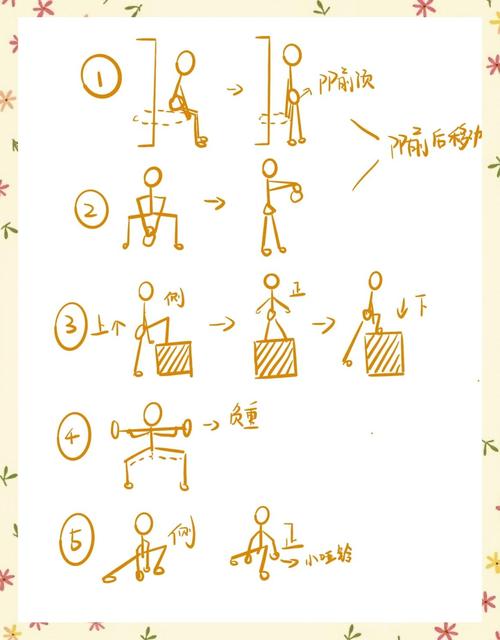 ①
阴前顶
阴前后移动
②
③ 上个
侧
正
↓下
④
负重
⑤
侧
正
小哑铃